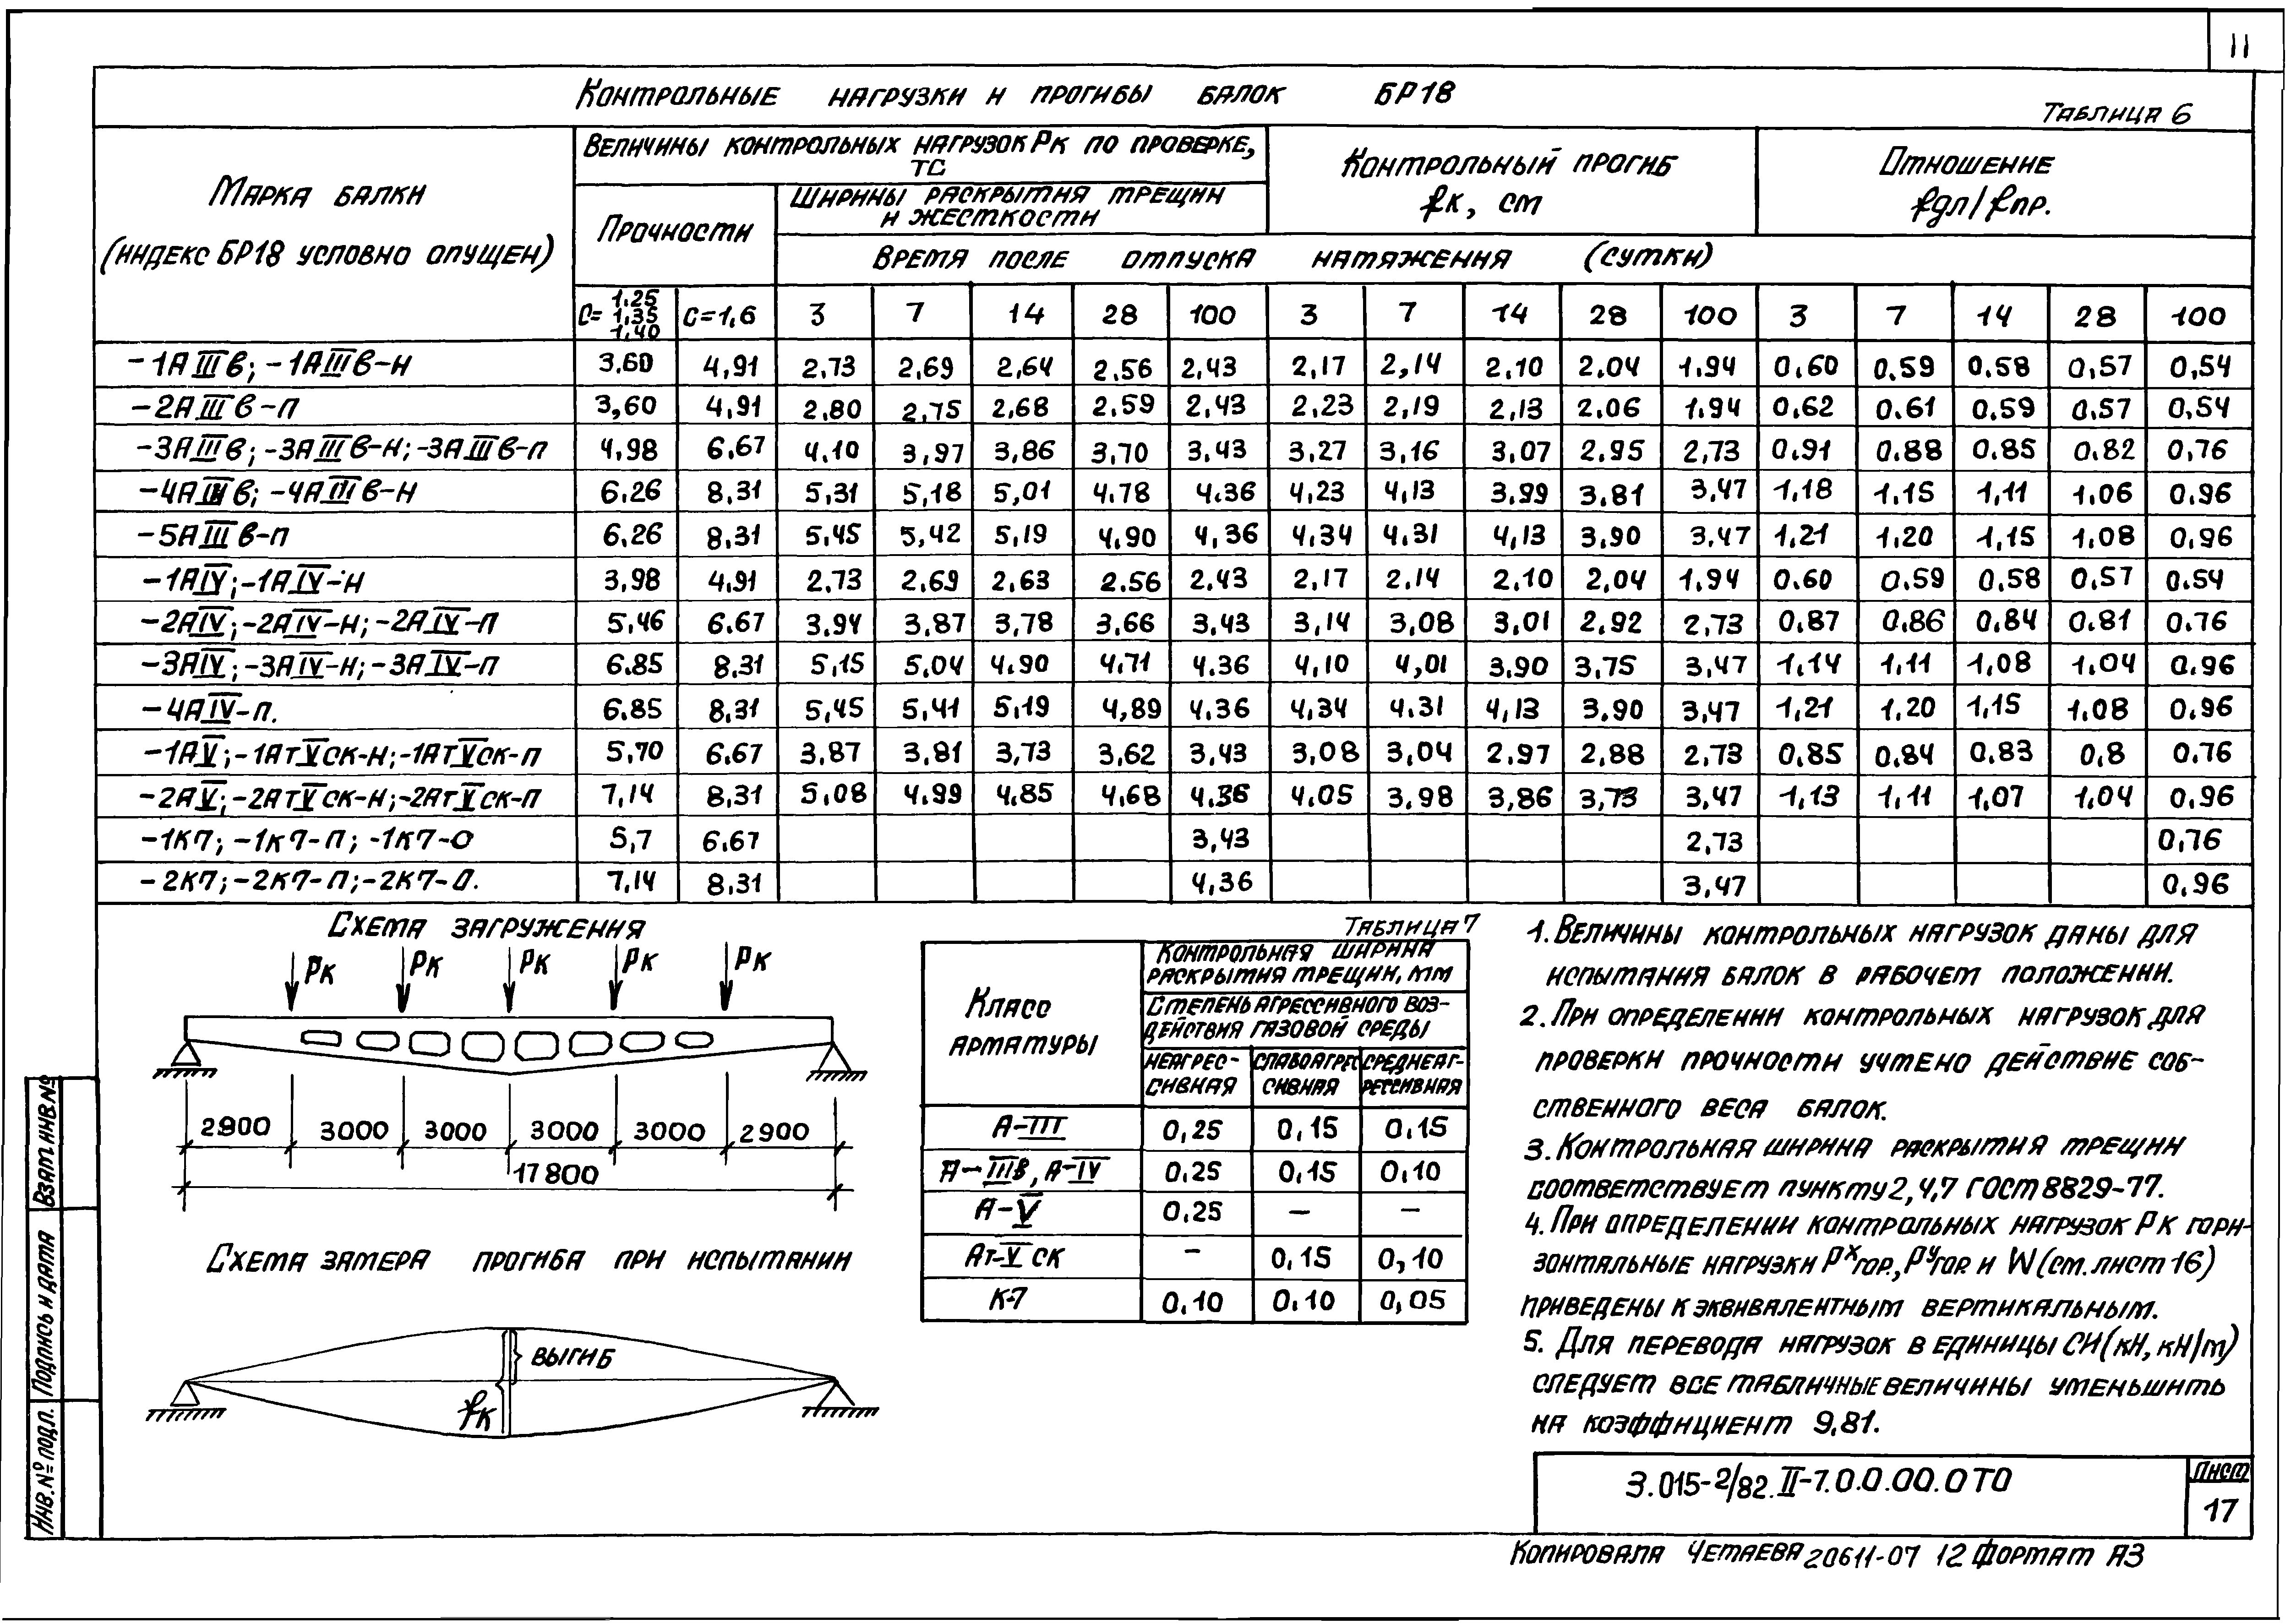 11
Контрольные нагрузки и прогибы балок БР18
Таблица 6
Марка балки
(индекс БР18 условно опущен)
Величины контрольных нагрузок Рк по проверке,
тс
Контрольный прогиб
fк, см
Отношение
fдл/fпр.
Прочности
Ширины раскрытия трещин
и жесткости
Время после отпуска натяжения (сутки)
С= 1.25 1,35 1,40 С=1,6 3 7 14 28 100 3 7 14 28 100 3 7 14 28 100
-1АIIIв; -1АIIIв-н 3.60 4,91 2,73 2,69 2,64 2.56 2,43 2,17 2,14 2,10 2,04 1.94 0.60 0.59 0.58 0,57 0,54
-2АIIIв-п 3,60 4,91 2,80 2,75 2,68 2,59 2,43 2,23 2,19 2,13 2,06 1.94 0,62 0.61 0,59 0.57 0,54
-3АIIIв; -3АIIIв-н; -3АIIIв-п 4,98 6.67 4,10 3,97 3,86 3,70 3,43 3,27 3,16 3,07 2.95 2,73 0.91 0.88 0.85 0.82 0,76
-4АIIIв; -4АIIIв-н 6,26 8,31 5,31 5,18 5,01 4.78 4.36 4,23 4,13 3,99 3,81 3,47 1,18 1,15 1,11 1,06 0.96
-5АIIIв-п 6,26 8,31 5,45 5,42 5,19 4.90 4,36 4,34 4,31 4,13 3.90 3,47 1,21 1,20 1,15 1.08 0,96
-1АIV; -1АIV-н 3,98 4,91 2,73 2,69 2,63 2.56 2,43 2,17 2,14 2,10 2,04 1,94 0.60 0,59 0,58 0.57 0.54
-2АIV; -2АIV-н; -2АIV-п 5,46 6.67 3.94 3,87 3,78 3,66 3,43 3,14 3,08 3,01 2,92 2,73 0,87 0,86 0,84 0.81 0.76
-3АIV; -3АIV-н; -3АIV-п 6.85 8.31 5,15 5,04 4.90 4,71 4.36 4,10 4,01 3,90 3,75 3,47 1,14 1,11 1,08 1,04 0.96
-4АIV-п. 6.85 8,31 5,45 5,41 5,19 4,89 4,36 4,34 4.31 4,13 3.90 3,47 1,21 1,20 1,15 1.08 0.96
-1АV; -1АтVск-н; -1АтVск-п 5,70 6.67 3,87 3,81 3,73 3,62 3,43 3,08 3,04 2,97 2,88 2,73 0,85 0,84 0,83 0,8 0,76
-2АV; -2АтVск-н; -2АтVск-п 7,14 8,31 5,08 4.99 4,85 4,68 4.36 4.05 3,98 3,86 3,73 3,47 1,13 1,11 1,07 1,04 0,96
-1К7; -1К7-П; -1К7-О 5,7 6.67 3,43 2,73 0,76
-2К7; -2К7-П; -2К7-О. 7,14 8,31 4,36 3,47 0,96
Схема загружения
Рк Рк Рк Рк Рк
2900 3000 3000 3000 3000 2900
17800
Схема замера прогиба при испытании
выгиб
fк
Таблица 7
Класс
арматуры
Контрольная ширина
раскрытия трещин, мм
Степень агрессивного воз-
действия газовой среды
неагрес-
сивная
слабоагрес
сивная
среднеаг-
рессивная
А-III 0,25 0,15 0,15
А-IIIв, А-IV 0.25 0,15 0,10
А-V 0,25 — —
Ат-V ск - 0,15 0,10
К-7 0,10 0,10 0,05
1. Величины контрольных нагрузок даны для
испытания балок в рабочем положении.
2. При определении контрольных нагрузок для
проверки прочности учтено действие соб-
ственного веса балок.
3. Контрольная ширина раскрытия трещин
соответствует пункту 2,4,7 ГОСТ 8829-77.
4. При определении контрольных нагрузок Рк гори-
зонтальные нагрузки Рˣгор., Рʸгор. и W (см. лист 16)
приведены к эквивалентным вертикальным.
5. Для перевода нагрузок в единицы СИ (кН, кН/м)
следует все табличные величины уменьшить
на коэффициент 9,81.
3.015-2/82.II-7.0.0.00.0ТО
Лист
17
Взам. инв.№
Подпись и дата
Инв.№ подл.
Копировала Четаева 20611-07 12 Формат А3